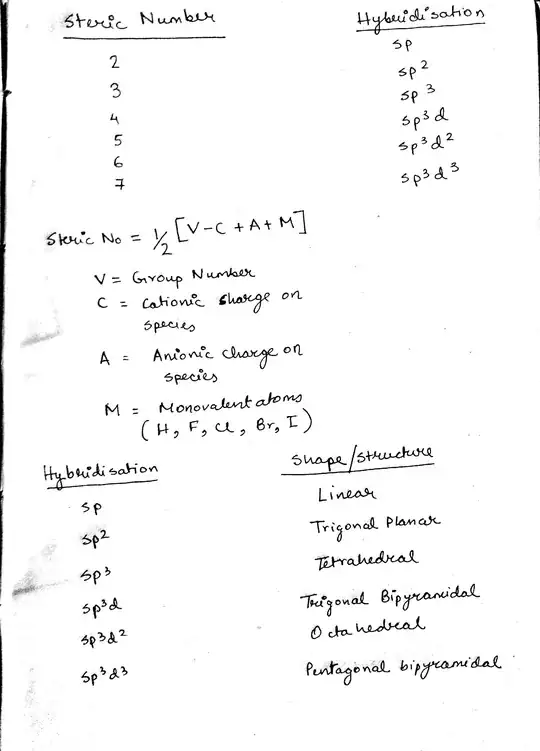 Steric Number Hybridisation
2 sp
3 sp²
4 sp³
5 sp³d
6 sp³d²
7 sp³d³
Steric No = 1/2 [V-C+A+M]
V = Group Number
C = Cationic charge on
species
A = Anionic charge on
species
M = Monovalent atoms
(H, F, Cl, Br, I)
Hybridisation Shape/Structure
sp Linear
sp² Trigonal Planar
sp³ Tetrahedral
sp³d Trigonal Bipyramidal
sp³d² Octahedral
sp³d³ Pentagonal bipyramidal